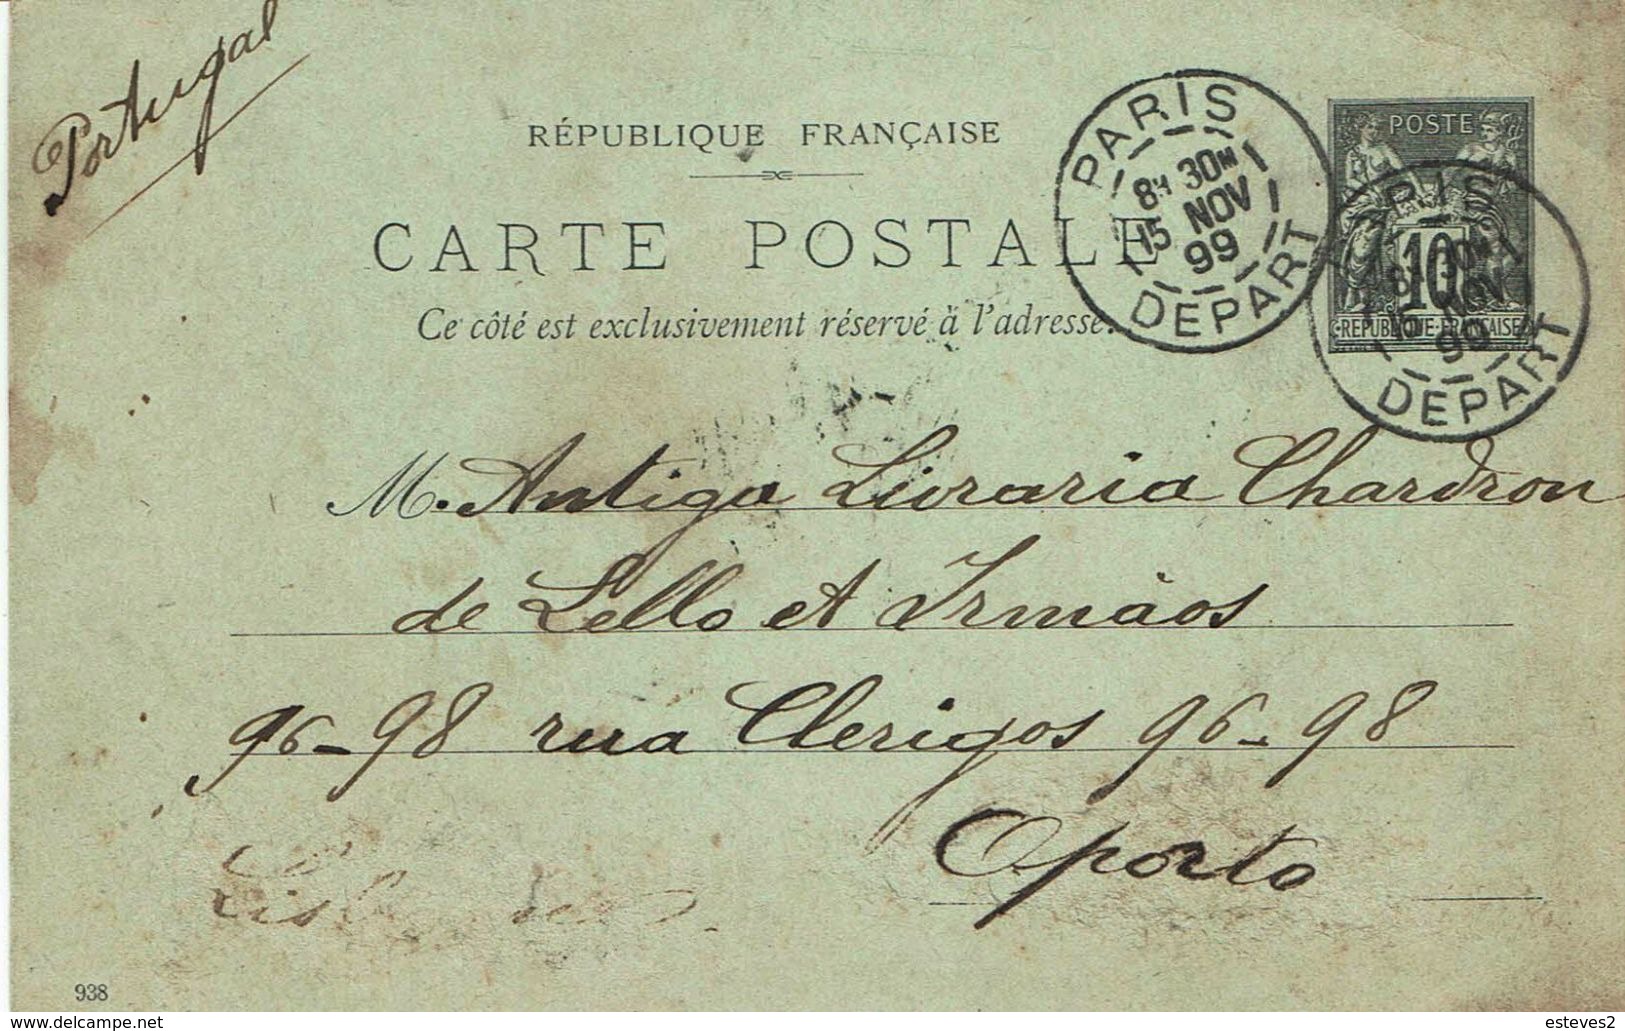 Portugal
RÉPUBLIQUE FRANÇAISE
CARTE POSTALE
Ce côté est exclusivement réservé à l'adresse.
PARIS
8H 30M
15 NOV
99
DEPART
POSTE
10
REPUBLIQUE FRANÇAISE
PARIS
8H 30M
15 NOV
99
DEPART
M. Antiga Livraria Chardron
de Lello et Irmãos
96-98 rua Clerigos 96-98
Oporto
938
www.delcampe.net
esteves2